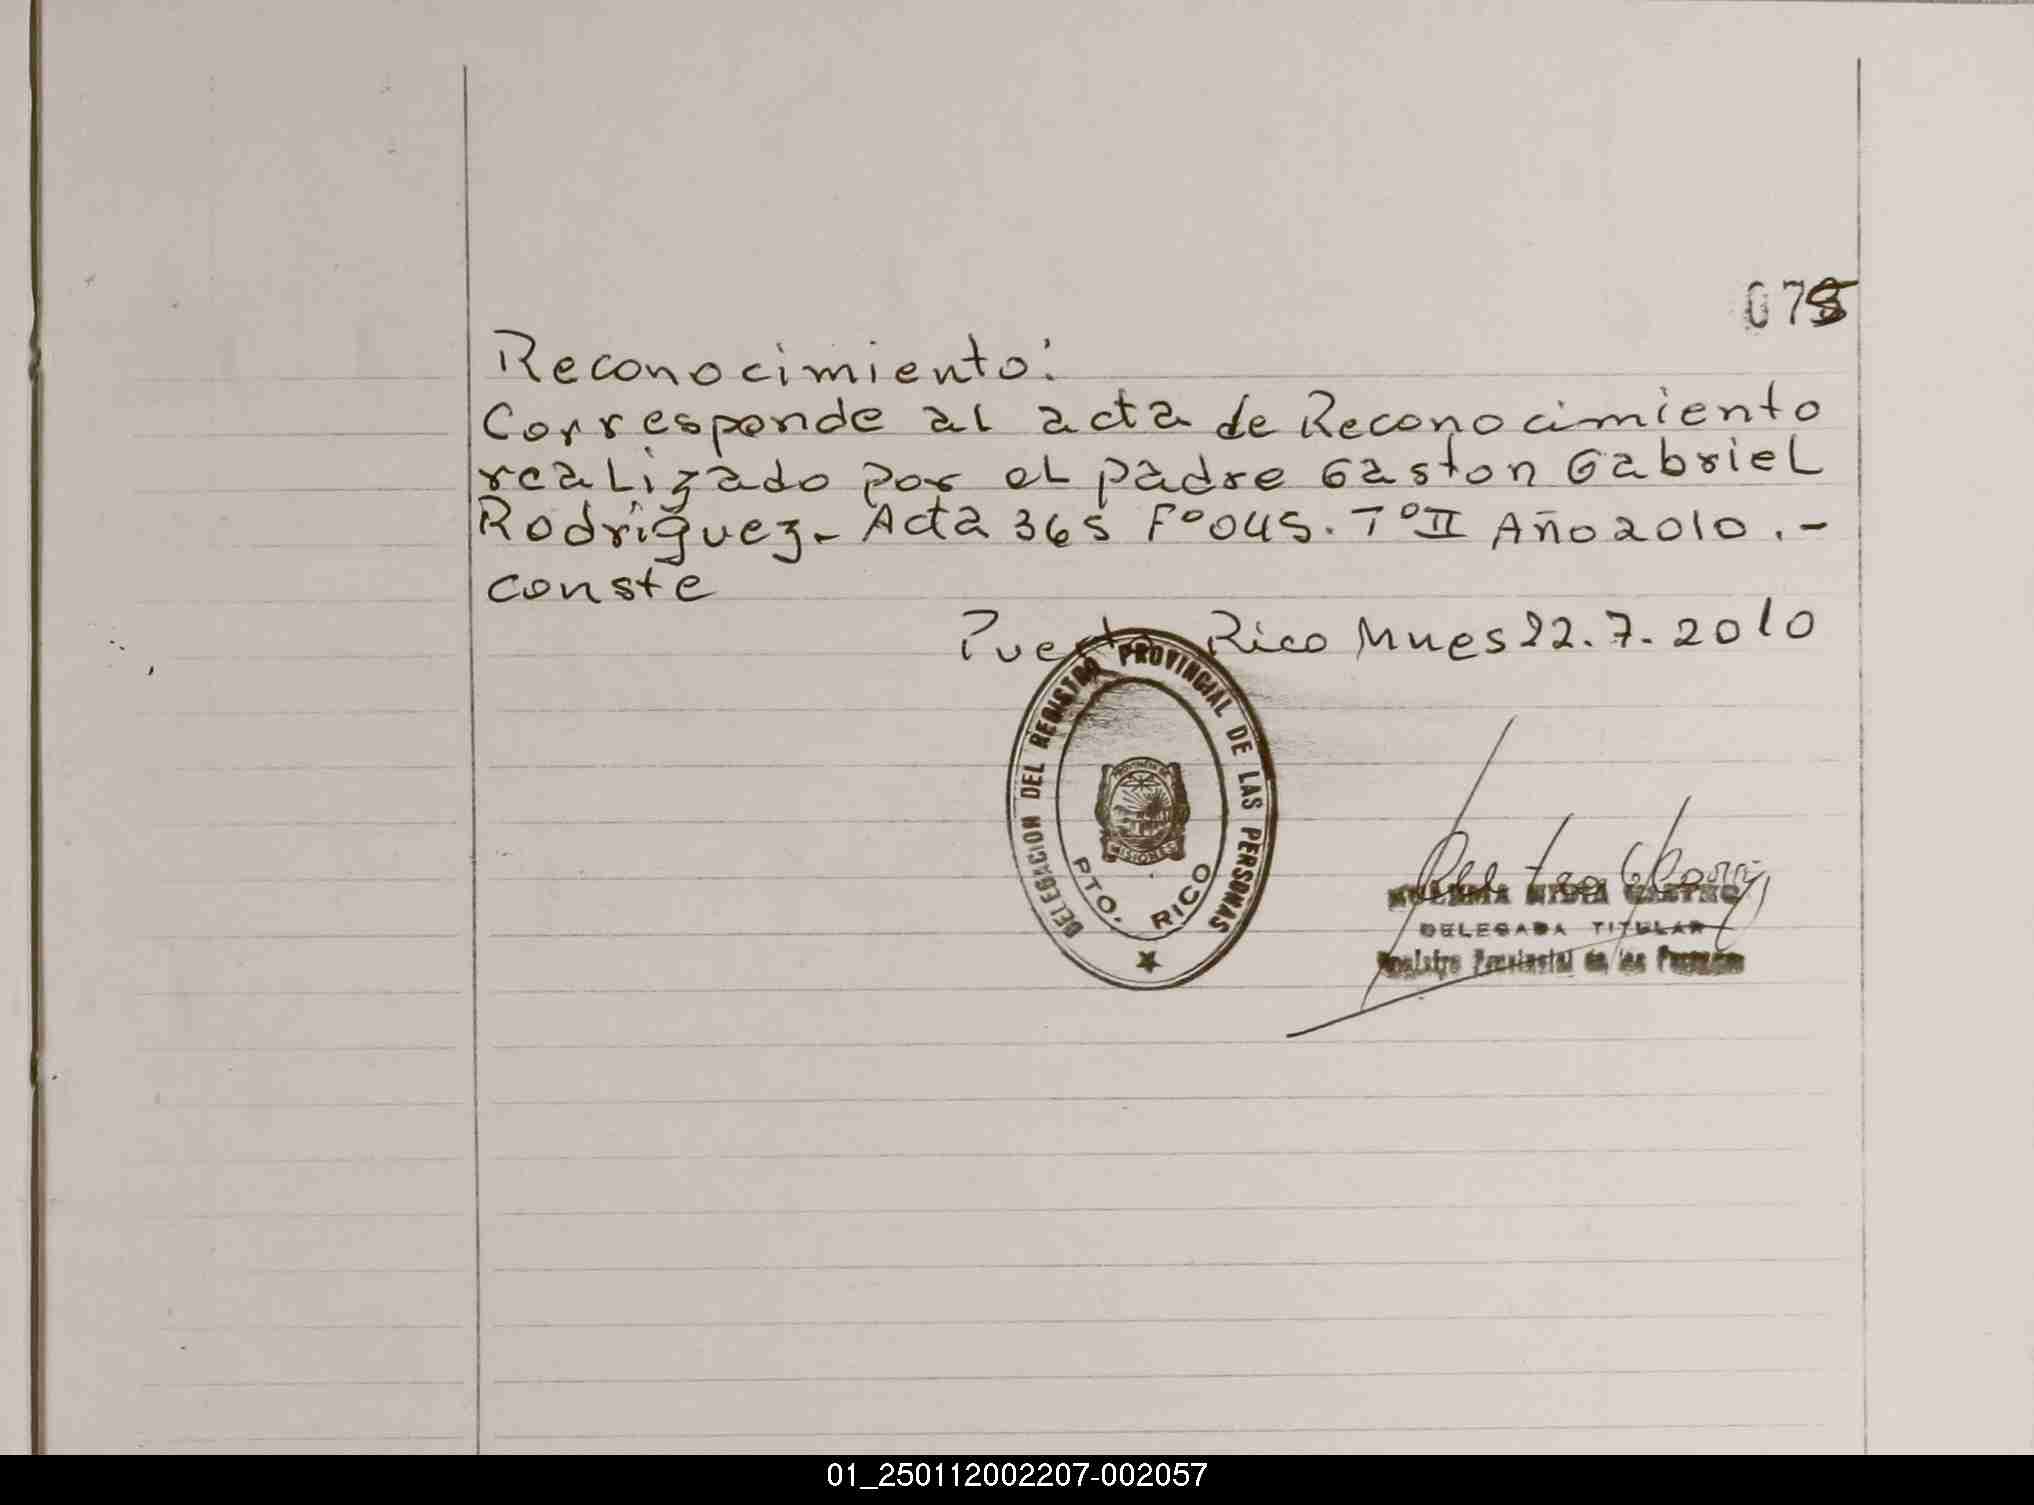 075
Reconocimiento:
Corresponde al acta de Reconocimiento
realizado por el padre Gaston Gabriel
Rodriguez- Acta 365 Fº045. TºII Año 2010.-
conste
Puerto Rico Mnes 22.7.2010
DELEGACION DEL REGISTRO PROVINCIAL DE LAS PERSONAS
PROVINCIA DE
MISIONES
PTO. RICO
NIDIA CASTRO
DELEGADA TITULAR
Registro Provincial de las Personas
01_250112002207-002057